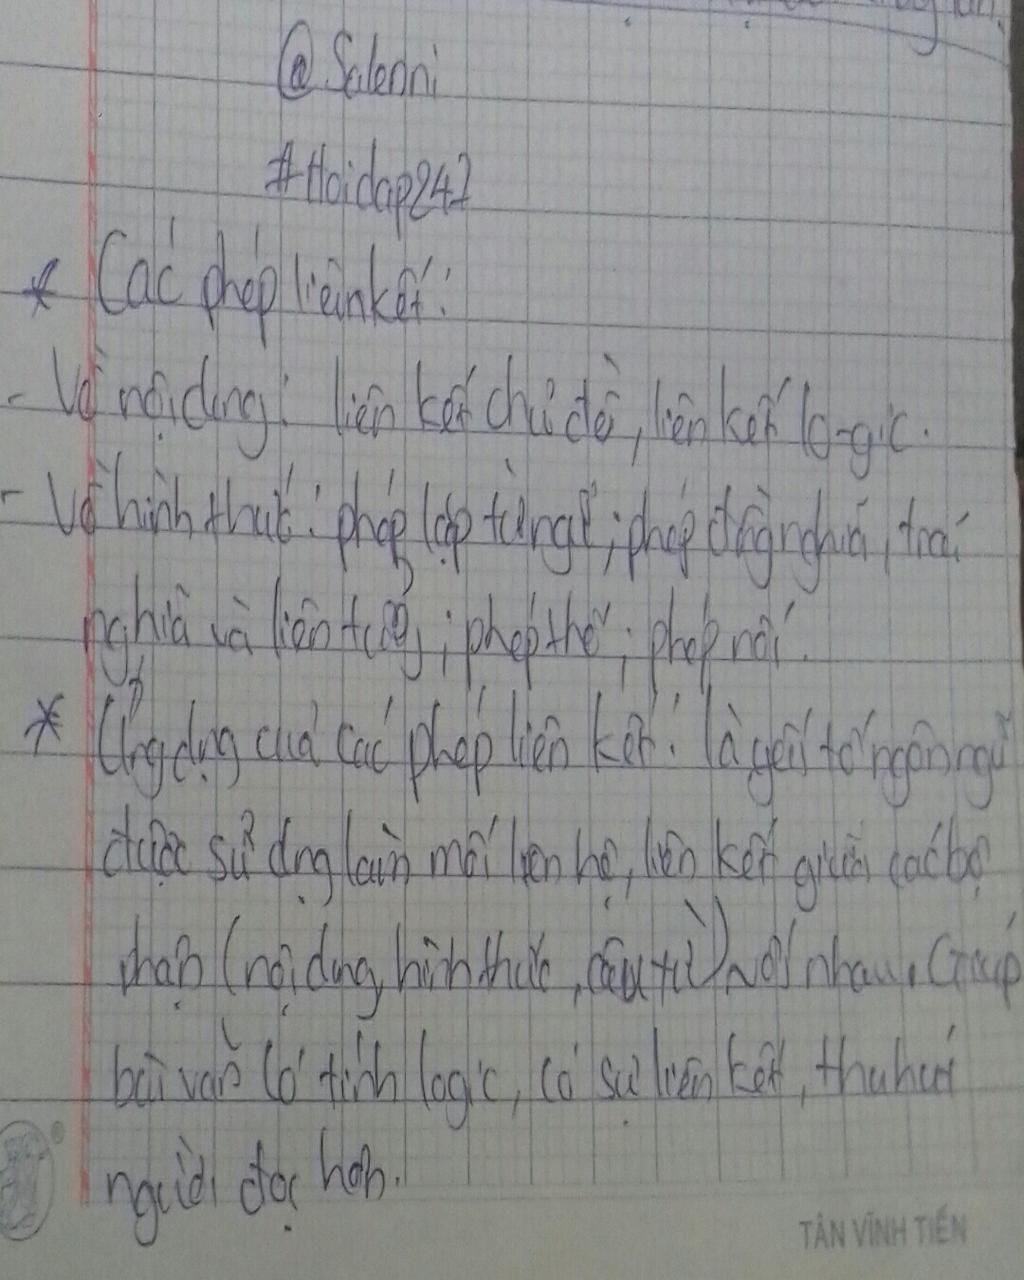 @Salenni
#Hoidap247
* Các phép liên kết:
- Về nội dung: liên kết chủ đề, liên kết lo-gic.
- Về hình thức: phép lặp từ ngữ; phép đồng nghĩa, trái
nghĩa và liên tưởng; phép thế; phép nối.
* Ứng dụng của các phép liên kết: là yếu tố ngôn ngữ
được sử dụng làm mối liên hệ, liên kết giữa các bộ
phận (nội dung, hình thức, câu từ) với nhau. Giúp
bài văn có tính logic, có sự liên kết, thu hút
người đọc hơn.
TÂN VĨNH TIẾN